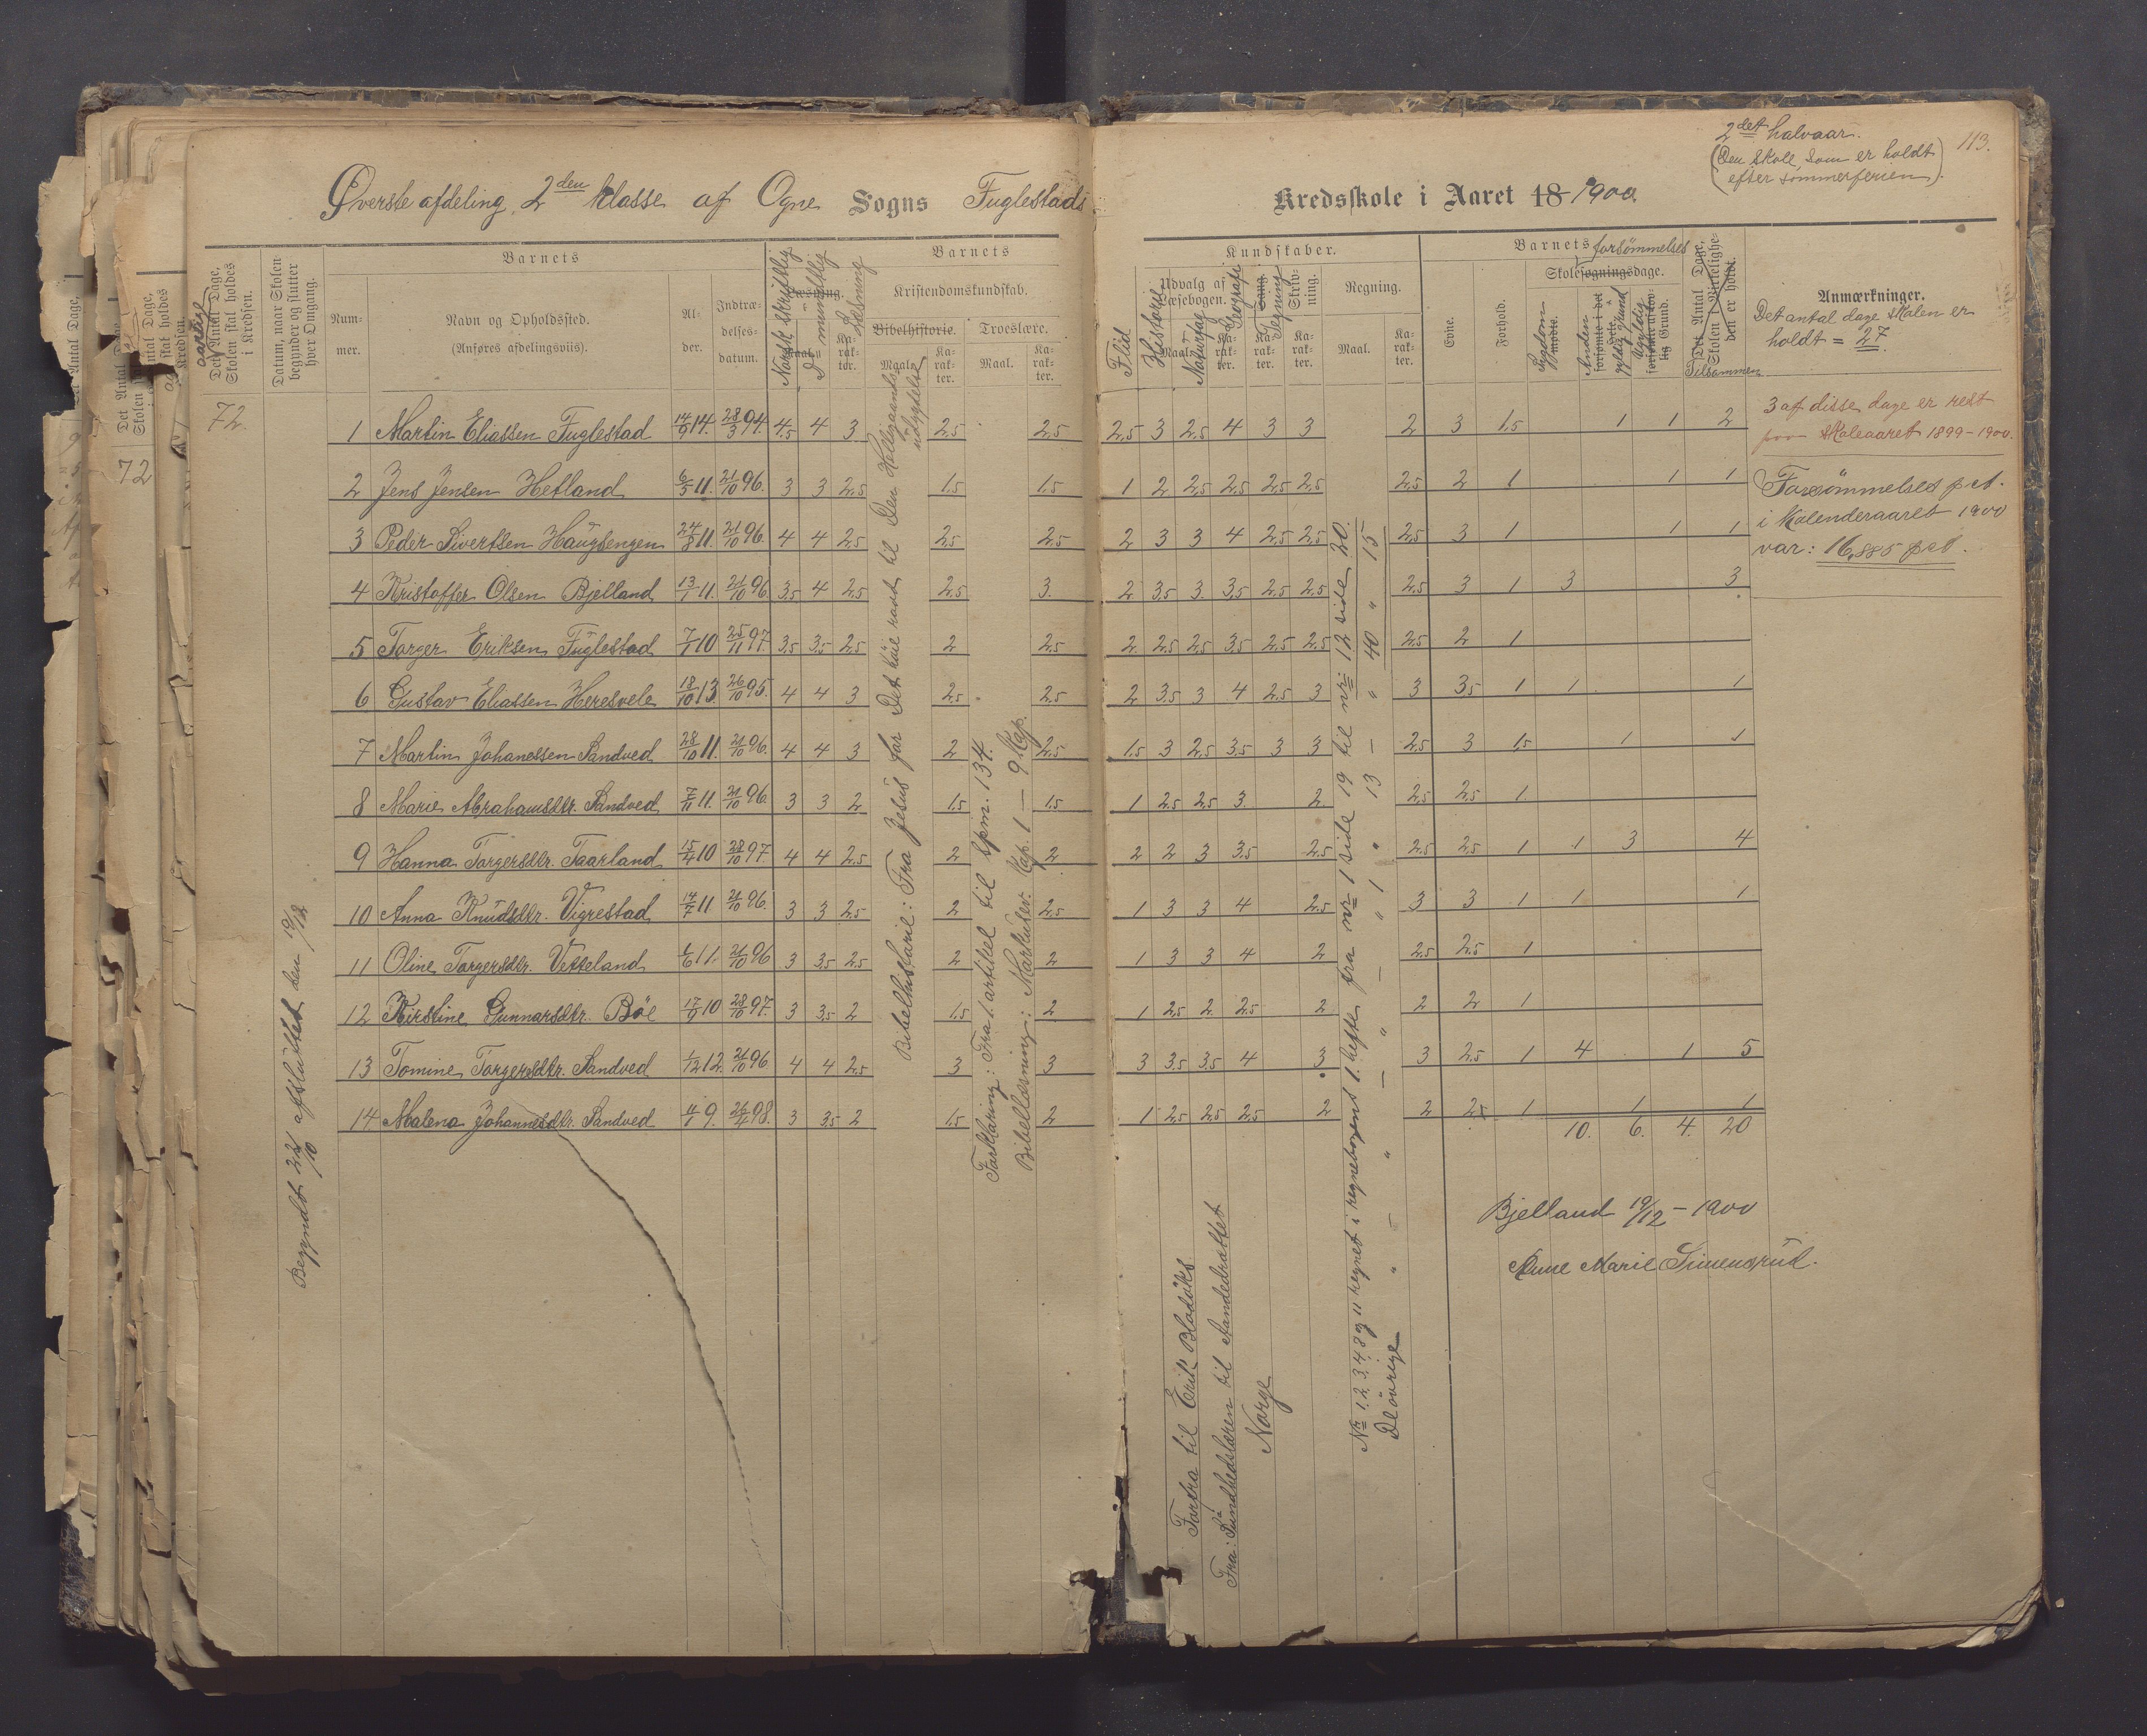 2det halvaar.
(Den skole, som er holdt
efter sommerferien).
113.
Øverste afdeling, 2den klasse af Ogne Sogns Fuglestads Kredsskole i Aaret 18 1900
Det Antal Dage, Skolen skal holdes i Kredsen.
aarlig
Datum, naar Skolen begynder og slutter hver Omgang.
Barnets
Nummer.
Navn og Opholdssted.
(Anføres afdelingsviis).
Alder.
Indtrædelsesdatum.
Norsk skriftlig
Læsning.
Maal.
Do mundtlig
Karakter.
Læsning
Barnets
Kristendomskundskab.
Bibelhistorie. Troeslære.
Maal. Karakter. Maal. Karakter.
Kundskaber.
Flid
Udvalg af Læsebogen.
Historie
Naturfag
Maal. Karakter.
Geografi
Sang.
Tegning
Karakter.
Skrivning.
Karakter.
Regning.
Maal. Karakter.
Evne.
Forhold.
Barnets forsømmelses
Skolesøgningsdage.
Sygdom
mødte.
Anden gyldig grund
forsømte i det Hele.
Ugyldig
forsømte af ulovlig Grund.
Det Antal Dage, Skolen i Virkeligheden er holdt.
Tilsammen
Anmærkninger.
Det antal dage skolen er
holdt = 27.
3 af disse dage er rest
fra skoleaaret 1899-1900.
Forsømmelses pct.
i kalenderaaret 1900
var: 16,885 pct.
72.
72
1 Martin Eliassen Fuglestad 14/9 14. 28/3 94. 4.5 4 3 2.5 2.5 2.5 3 2.5 4 3 3 2 3 1.5 1 1 2
2 Jens Jensen Hetland 6/5 11. 21/10 96. 3 3 2.5 1.5 1.5 1 2 2.5 2.5 2.5 2.5 2.5 2 1 1 1
3 Peder Sivertsen Haugtengen 24/8 11. 21/10 96. 4 4 2.5 2.5 2.5 2 3 3 4 2.5 2.5 2.5 3 1 1 1
4 Kristoffer Olsen Bjelland 13/1 11. 21/10 96 3.5 4 2.5 2.5 3. 2 3.5 3. 3.5 2.5 2.5 2.5 3 1 3 3
5 Torger Eriksen Fuglestad 7/1 10 25/11 97. 3.5 3.5 2.5 2 2.5 2. 2.5 2.5 3.5 2.5 2.5 2.5 2 1
6 Gustav Eliassen Heresvele 18/10 13. 26/10 95. 4 4 3 2.5 2.5 2 3.5 3 4 2.5 3 3 3.5 1 1 1
7 Martin Johanessen Sandved 28/10 11. 21/10 96. 4 4 3 2 2.5 1.5 3 2.5 3.5 3 3 2.5 3 1.5 1 1
8 Marie Abrahamsdtr. Sandved 7/11 11. 21/10 96. 3 3 2 1.5 1.5 1 2.5 2.5 3. 2 2.5 2.5 1.
9 Hanna Torgersdtr. Taarland 15/4 10 28/10 97. 4 4 2.5 2 2 2 2 3 3.5 2.5 2.5 2.5 1 1 3 4
10 Anna Knudsdtr. Vigrestad 14/7 11. 21/10 96. 3 3 2.5 2 2.5 1 3 3 4 2.5 3 3 1 1 1
11 Oline Torgersdtr. Vetteland 6/6 11. 21/10 96 3 3.5 2.5 2 2 1 3 3 4 2 2.5 2.5 1
12 Kirstine Gunnarsdtr. Böe 17/9 10 28/10 97. 3 3.5 2 1.5 2 1 2.5 2. 2.5 2 2 2 1
13 Tomine Torgersdtr. Sandved 1/12 12. 21/10 96. 4 4 2.5 3 3 3 3.5 3.5 4 3 3 2.5 1 4 1 5
14 Malena Johannesdtr. Sandved 11/1 9. 26/4 98. 3 3.5 2 1.5 2 1 2.5 2.5 2.5 2 2 2.5 1 1 1
10. 6. 4. 20
Begyndt 22/10 afsluttet den 19/12
Bibelhistorie: Fra Jesus for Det höie raad til Den Helligaands udgydelse
Forklaring: Fra 1 artikel til Spm. 134.
Bibellæsning: Markusev. Kap. 1 — 9 Kap.
Fortra til Erik Blodöks
Fra: Sundhedslæren til Aandedrættet
Norge
No 1.2.3.4.8 og 11 regnet i regnebogens 1. hefte fra nr 1 side 19 til nr 12 side 20.
De övrige " " — " — " 1 " 13 — " 40 " 15
Bjelland 19/12 - 1900
Anne Marie Simensrud.